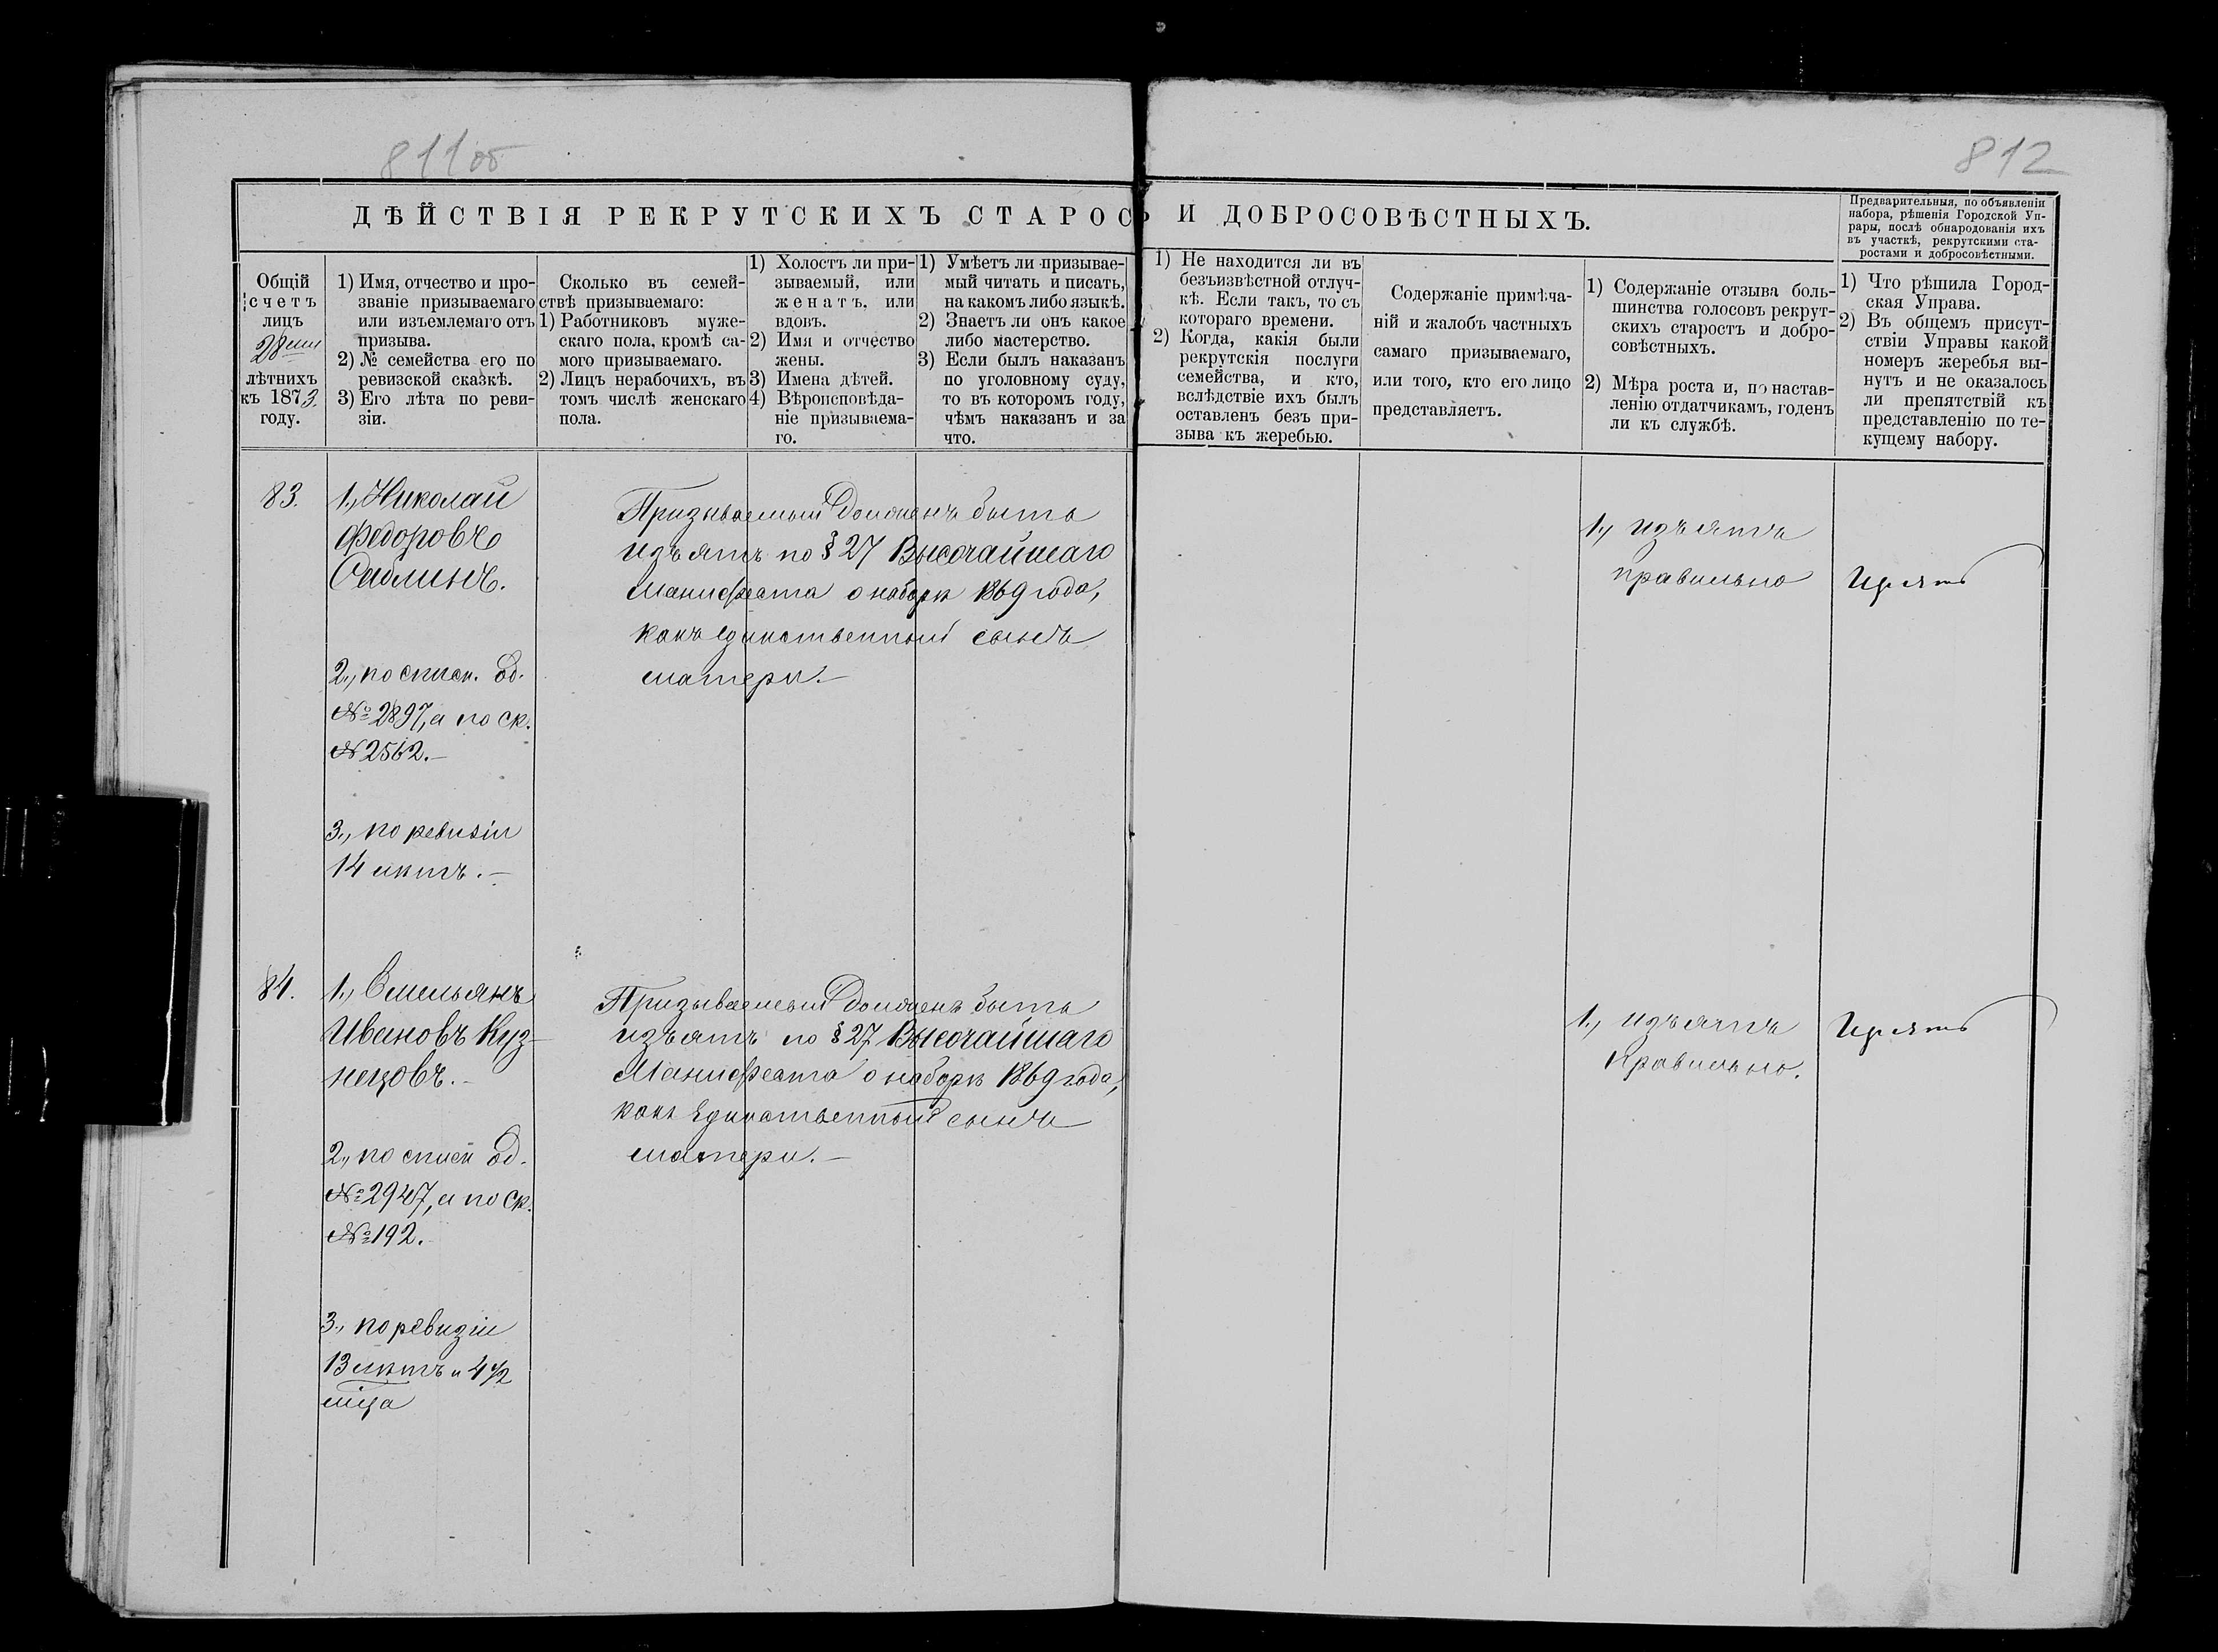 811об
812
ДѢЙСТВІЯ РЕКРУТСКИХЪ СТАРОС
Ъ И ДОБРОСОВѢСТНЫХЪ.
Предварительныя, по объявленіи
набора, рѣшенія Городской Уп-
рары, послѣ обнародованія ихъ
въ участкѣ, рекрутскими ста-
ростами и добросовѣстными.
Общій
счетъ
лицъ
28ми
лѣтнихъ
къ 1873
году.
1) Имя, отчество и про-
званіе призываемаго
или изъемлемаго отъ
призыва.
2) № семейства его по
ревизской сказкѣ.
3) Его лѣта по реви-
зіи.
Сколько въ семей-
ствѣ призываемаго:
1) Работниковъ муже-
скаго пола, кромѣ са-
мого призываемаго.
2) Лицъ нерабочихъ, въ
томъ числѣ женскаго
пола.
1) Холостъ ли при-
зываемый, или
женатъ, или
вдовъ.
2) Имя и отчество
жены.
3) Имена дѣтей.
4) Вѣроисповѣда-
ніе призываема-
го.
1) Умѣетъ ли призывае-
мый читать и писать,
на какомъ либо языкѣ.
2) Знаетъ ли онъ какое
либо мастерство.
3) Если былъ наказанъ
по уголовному суду,
то въ которомъ году,
чѣмъ наказанъ и за
что.
1) Не находится ли въ
безъизвѣстной отлуч-
кѣ. Если такъ, то съ
котораго времени.
2) Когда, какія были
рекрутскія послуги
семейства, и кто,
вслѣдствіе ихъ былъ
оставленъ безъ при-
зыва къ жеребью.
Содержаніе примѣча-
ній и жалобъ частныхъ
самаго призываемаго,
или того, кто его лицо
представляетъ.
1) Содержаніе отзыва боль-
шинства голосовъ рекрут-
скихъ старостъ и добро-
совѣстныхъ.
2) Мѣра роста и, по настав-
ленію отдатчикамъ, годенъ
ли къ службѣ.
1) Что рѣшила Город-
ская Управа.
2) Въ общемъ присут-
ствіи Управы какой
номеръ жеребья вы-
нутъ и не оказалось
ли препятствій къ
представленію по те-
кущему набору.
83.
1., Николай
Федоровъ
Саблинъ.
2., по списк. Од.
№ 2897, а по ск.
№ 2562.—
3., по ревизіи
14 лѣтъ.—
Призываемый долженъ быть
изъятъ по § 27 Высочайшаго
Манифеста о наборѣ 1869 года,
какъ единственный сынъ
матери.—
1., изъятъ
правильно
Изъятъ
84.
1., Емельянъ
Ивановъ Куз-
нецовъ.—
2., по списк Од.
№ 2947, а по ск.
№ 192.
3., по ревизіи
13 лѣтъ и 4 1/2
мѣца
Призываемый долженъ быть
изъятъ по § 27 Высочайшаго
Манифеста о наборѣ 1869 года,
какъ единственный сынъ
матери.—
1., изъятъ
правильно.
Изъятъ